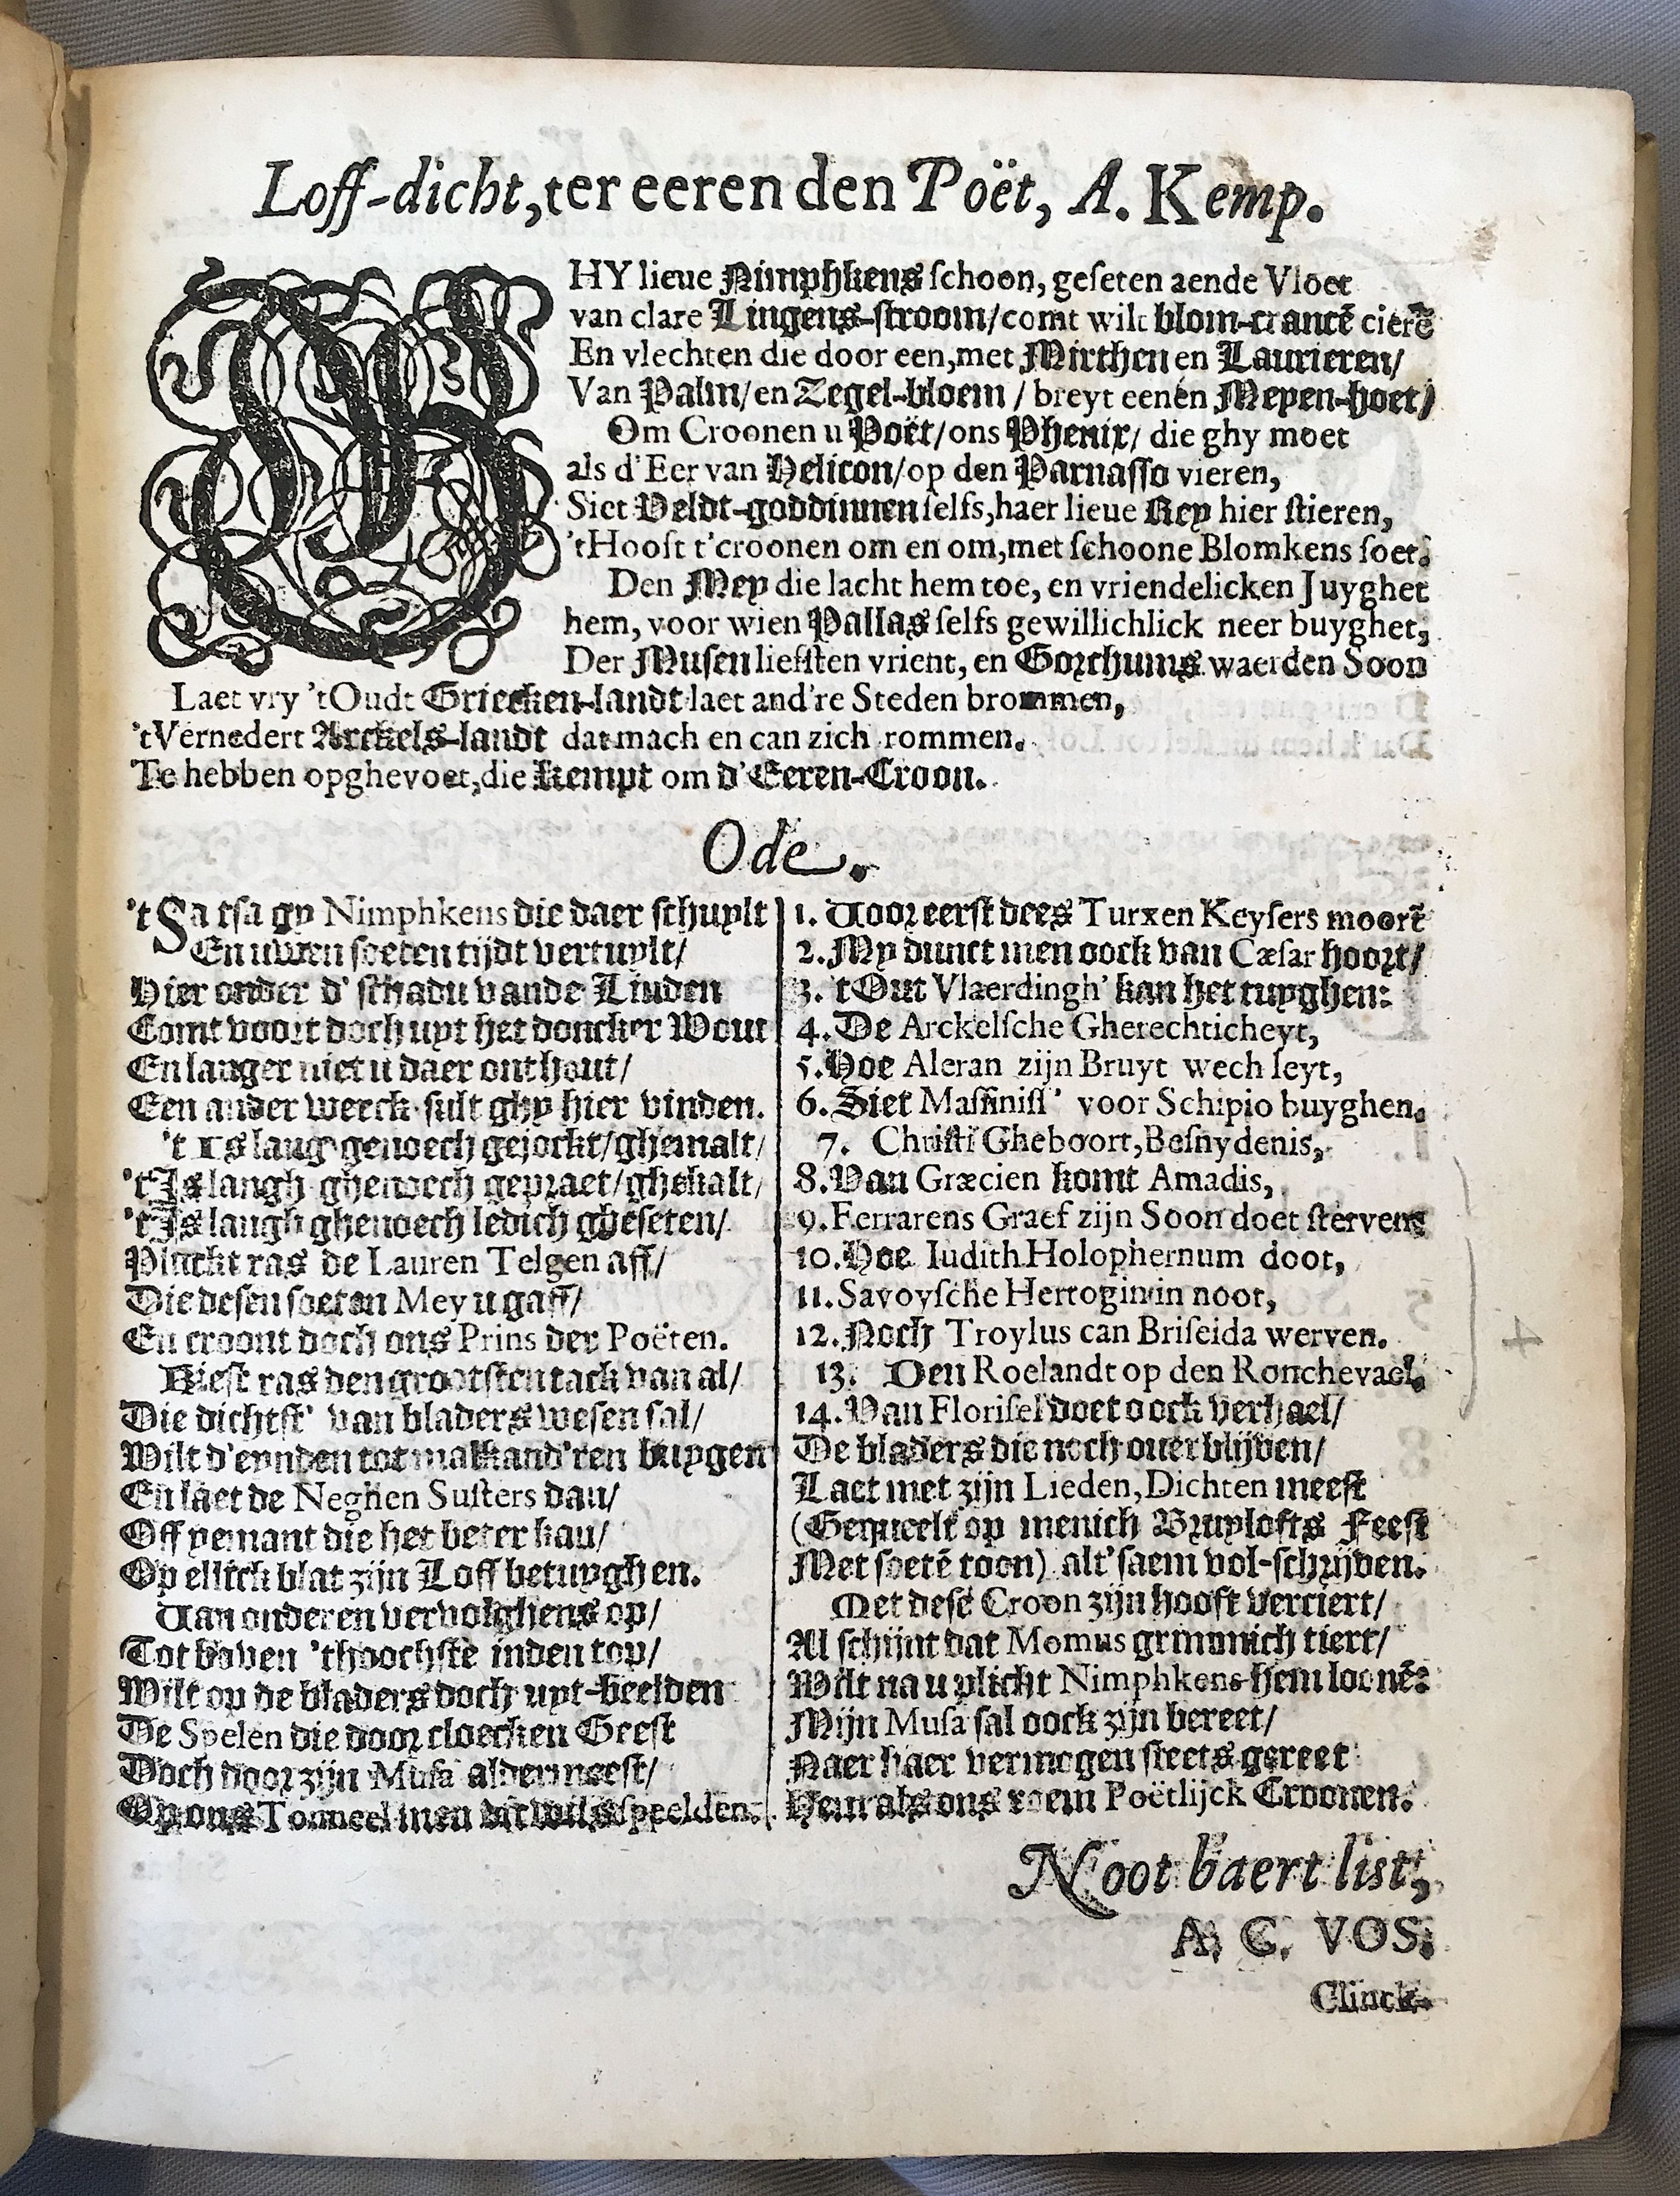 Loff-dicht, ter eeren den Poët, A. Kemp.
GHY lieue Nimphkens schoon, geseten aende Vloet
van clare Lingens-stroom/comt wilt blom-crantē cierē
En vlechten die door een, met Mirthen en Laurieren/
Van Palm/en Zegel-bloem / breyt eenen Meyen-hoet/
Om Croonen u Poët/ons Phenix/ die ghy moet
als d'Eer van Helicon/op den Parnasso vieren,
Siet Veldt-goddinnen selfs, haer lieue Rey hier stieren,
'tHooft t'croonen om en om, met schoone Blomkens soet.
Den Mey die lacht hem toe, en vriendelicken Juyghet
hem, voor wien Pallas selfs gewillichlick neer buyghet,
Der Musen liefsten vrient, en Gorchums waerden Soon
Laet vry 'tOudt Griecken-landt laet and're Steden brommen,
'tVernedert Arckels-landt dat mach en can zich rommen.
Te hebben opghevoet, die Kempt om d'Eeren-Croon.
Ode.
'tSa tsa gy Nimphkens die daer schuylt
En uwen soeten tijdt vertuylt/
Hier onder d' schadu vande Linden
Comt voort doch uyt het doncker Wout
En langer niet u daer onthout/
Een ander werck sult ghy hier vinden.
't Is lang genoech gejockt/ghemalt/
'tIs langh ghenoech gepraet/ghekalt/
'tIs langh ghenoech ledich gheseten/
Pluckt ras de Lauren Telgen aff/
Die desen soeten Mey u gaff/
En croont doch ons Prins der Poëten.
Kiest ras den grootsten tack van al/
Die dichtst' van bladers wesen sal/
Wilt d'eynden tot malkand'ren buygen
En laet de Neghen Susters dan/
Off yemant die het beter kan/
Op ellick blat zijn Loff betuyghen.
Van onderen vervolghens op/
Tot boven 'thoochste inden top/
Wilt op de bladers doch uyt-beelden
De Spelen die door cloecken Geest
Doch door zijn Musa aldermeest/
Op ons Tonneel men dit wils speelden.
1. Voor eerst dees Turxen Keysers moort
2. My dunct men oock van Cæsar hoort/
3. 'tOut Vlaerdingh' kan het tuyghen:
4. De Arckelsche Gherechticheyt,
5. Hoe Aleran zijn Bruyt wech leyt,
6. Siet Massiniss' voor Schipio buyghen.
7. Christi Gheboort, Besnydenis,
8. Van Græcien komt Amadis,
9. Ferrarens Graef zijn Soon doet sterven
10. Hoe Iudith Holophernum doot,
11. Savoysche Hertogin in noot,
12. Noch Troylus can Briseida werven.
13. Den Roelandt op den Ronchevael.
14. Van Florisel doet oock verhael/
De bladers die noch over blijven/
Laet met zijn Lieden, Dichten meest
(Gequeelt op menich Bruylofts Feest
Met soetē toon) alt'saem vol-schrijven.
Met dese Croon zijn hooft verciert/
Al schijnt dat Momus grimmich tiert/
Wilt na u plicht Nimphkens hem loonē:
Mijn Musa sal oock zijn bereet/
Naer haer vermogen steets gereet
Hem als ons roem Poëtlijck Croonen.
Noot baert list,
A. C. VOS.
Clinck-
4